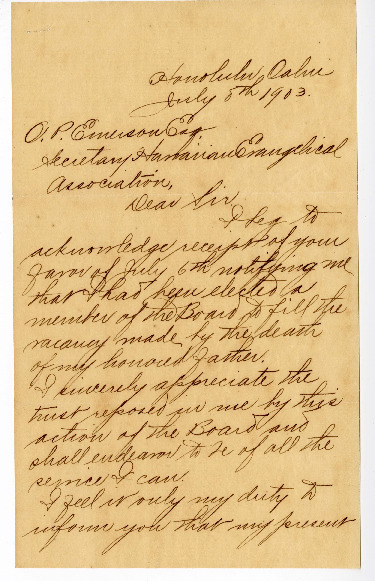 Honolulu, Oahu
July 8th 1903.
O. P. Emerson Esq.
Secretary Hawaiian Evangelical
Association,
Dear Sir,
I beg to
acknowledge receipt of your
favor of July 6th notifying me
that I had been elected a
member of the Board to fill the
vacancy made by the death
of my honored father.
I sincerely appreciate the
trust reposed in me by this
action of the Board and
shall endeavor to be of all the
service I can.
I feel it only my duty to
inform you that my present